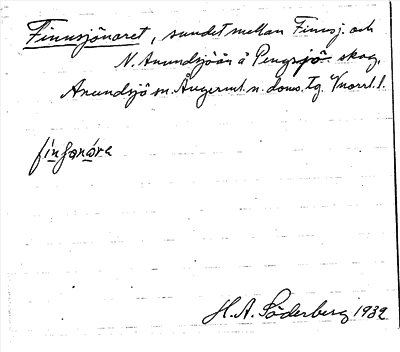 Finnsjönoret, sundet mellan Finnsj. och
N. Anundsjöån å Pengsjö skog,
Anundsjö sn. Ångerml. n. doms. Tg. Vnorrl. l.
H. A. Söderberg 1932